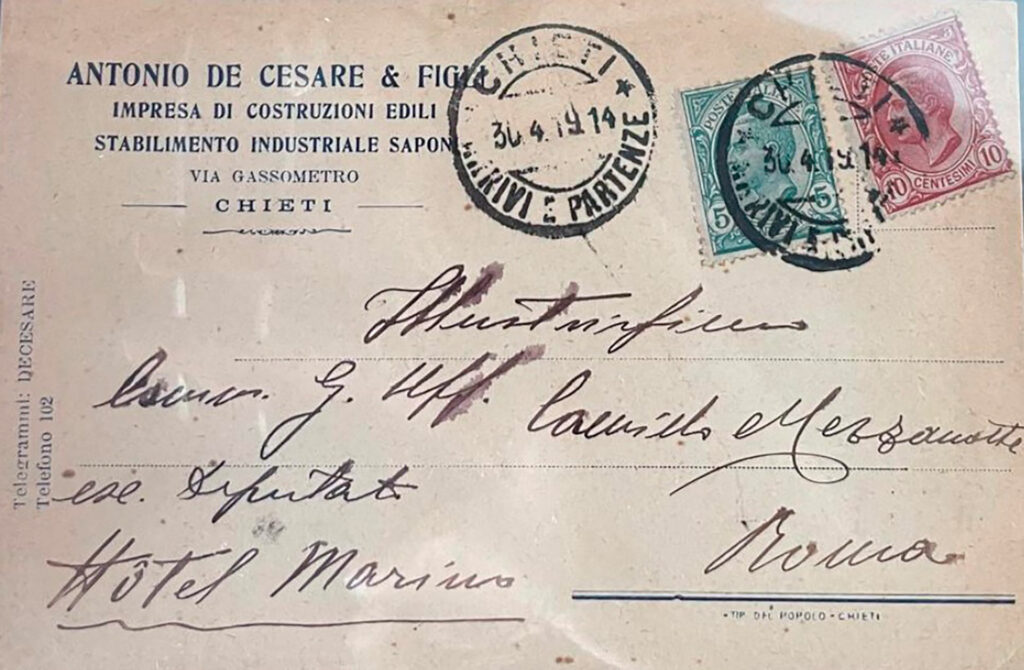 ANTONIO DE CESARE & FIGLI
IMPRESA DI COSTRUZIONI EDILI
STABILIMENTO INDUSTRIALE SAPONI
VIA GASSOMETRO
CHIETI
Telegrammi: DECESARE
Telefono 102
CHIETI *
30.4.19.14
ARRIVI E PARTENZE
POSTE ITALIANE
5 5
POSTE ITALIANE
10 CENTESIMI 10
30.4.19.14
Illustrissimo
Comm. G. Uff. Camillo Mezzanotte
Deputato
Roma
Hôtel Marino
TIP. DEL POPOLO - CHIETI